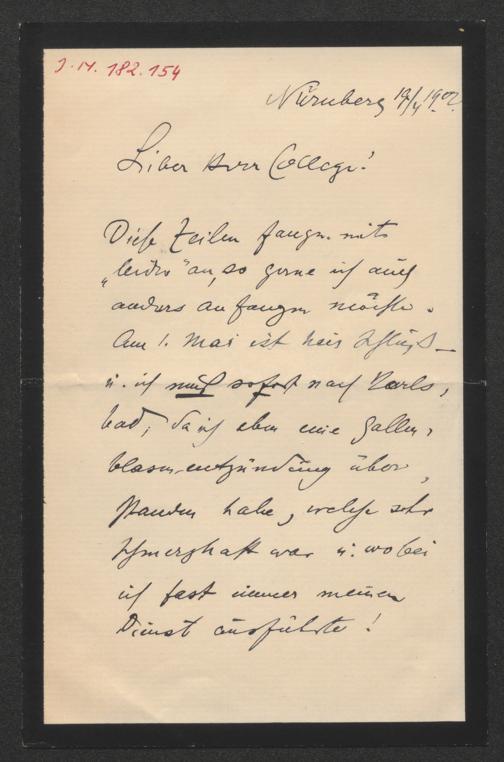 J.N. 182.154
Nürnberg 19/4 1902.
Lieber Herr College!
Diese Zeilen fangen mit
„leider" an, so gerne ich auch
anders anfangen möchte.
Am 1. Mai ist hier Schluß –
u. ich muß sofort nach Karls-
bad, da ich eben eine Gallen-
blasenentzündung über-
standen habe, welche sehr
schmerzhaft war u. wobei
ich fast immer meinen
Dienst ausführte!